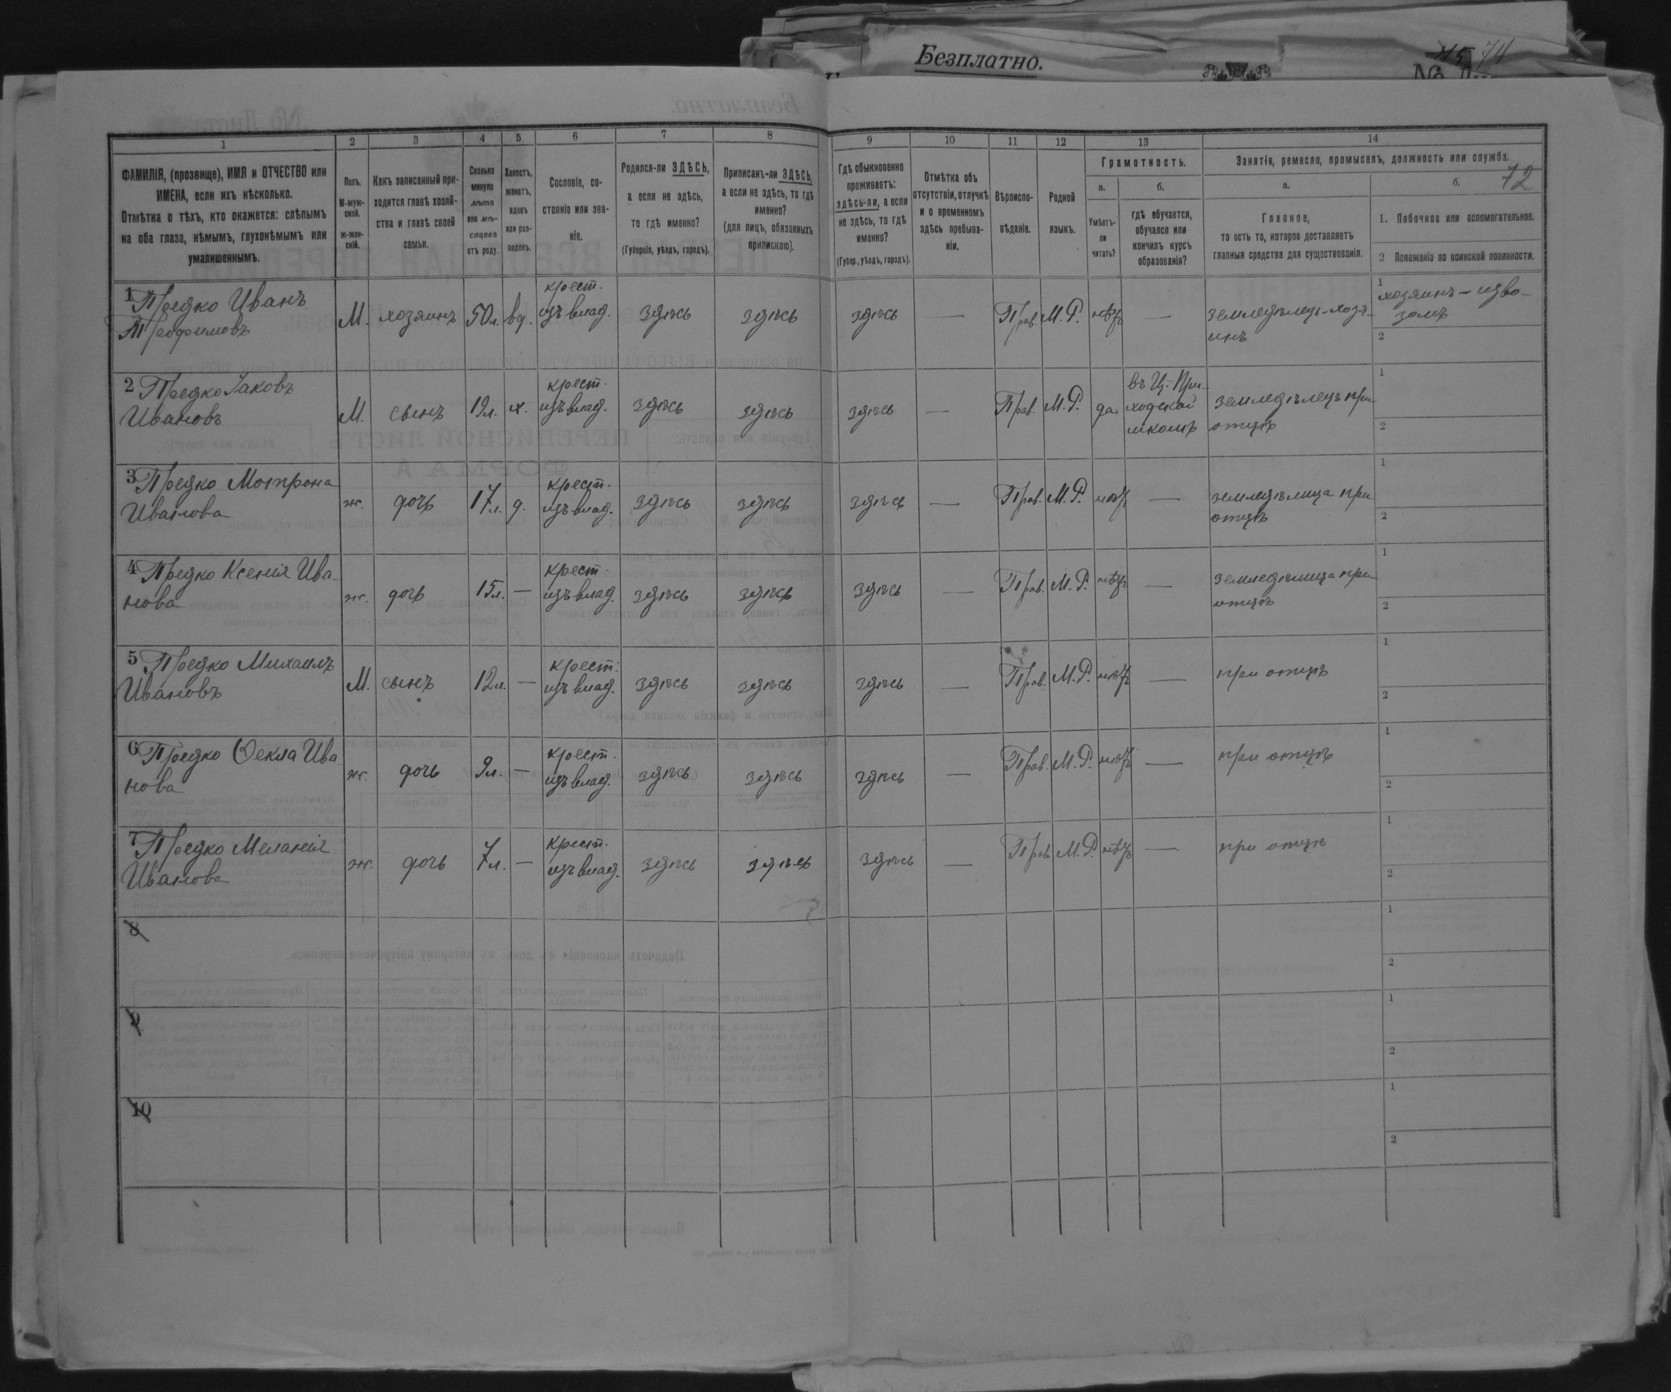 Безплатно.
74
72
1 2 3 4 5 6 7 8 9 10 11 12 13 14
ФАМИЛІЯ, (прозвище), ИМЯ и ОТЧЕСТВО или
ИМЕНА, если ихъ нѣсколько.
Отмѣтка о тѣхъ, кто окажется: слѣпымъ
на оба глаза, нѣмымъ, глухонѣмымъ или
умалишеннымъ.
Полъ.
М-муж-
ской.
ж-жен-
скій.
Какъ записанный при-
ходится главѣ хозяй-
ства и главѣ своей
семьи.
Сколько
минуло
лѣтъ
или мѣ-
сяцевъ
отъ роду.
Холостъ,
женатъ,
вдовъ
или раз-
веденъ.
Сословіе, со-
стояніе или зва-
ніе.
Родился-ли ЗДѢСЬ,
а если не здѣсь,
то гдѣ именно?
(Губернія, уѣздъ, городъ).
Приписанъ-ли ЗДѢСЬ,
а если не здѣсь, то гдѣ
именно?
(для лицъ, обязанныхъ
припискою).
Гдѣ обыкновенно
проживаетъ:
здѣсь-ли, а если
не здѣсь, то гдѣ
именно?
(Губер., уѣздъ, городъ).
Отмѣтка объ
отсутствіи, отлучкѣ
и о временномъ
здѣсь пребыва-
ніи.
Вѣроиспо-
вѣданіе.
Родной
языкъ.
Грамотность.
а.
Умѣетъ-
ли
читать?
б.
гдѣ обучается,
обучался или
кончилъ курсъ
образованія?
Занятіе, ремесло, промыселъ, должность или служба.
а.
Главное,
то есть то, которое доставляетъ
главныя средства для существованія.
б.
1. Побочное или вспомогательное.
2 Положеніе по воинской повинности.
1 Предко Иванъ
Трофимовъ
М. хозяинъ 50л. вд.
крест.
изъ влад.
здѣсь здѣсь здѣсь — Прав. М.Р. нѣтъ —
земледѣлецъ-хозя-
инъ
1 хозяинъ — изво-
зомъ
2
2 Предко Іаковъ
Ивановъ
М. сынъ 19л. х.
крест.
изъ влад.
здѣсь здѣсь здѣсь — Прав. М.Р. да
въ Ц.-При-
ходской
школѣ
земледѣлецъ при
отцѣ
1
2
3 Предко Мотрона
Иванова
ж. дочь 17л. д.
крест.
изъ влад.
здѣсь здѣсь здѣсь — Прав. М.Р. нѣтъ —
земледѣлица при
отцѣ
1
2
4 Предко Ксенія Ива-
нова
ж. дочь 15л. —
крест.
изъ влад.
здѣсь здѣсь здѣсь — Прав. М.Р. нѣтъ —
земледѣлица при
отцѣ
1
2
5 Предко Михаилъ
Ивановъ
М. сынъ 12л. —
крест.
изъ влад.
здѣсь здѣсь здѣсь — Прав. М.Р. нѣтъ —
при отцѣ
1
2
6 Предко Ѳекла Ива
нова
ж. дочь 9л. —
крест.
изъ влад.
здѣсь здѣсь здѣсь — Прав. М.Р. нѣтъ —
при отцѣ
1
2
7 Предко Меланія
Иванова
ж. дочь 7л. —
крест.
изъ влад.
здѣсь здѣсь здѣсь — Прав. М.Р. нѣтъ —
при отцѣ
1
2
8
1
2
9
1
2
10
1
2